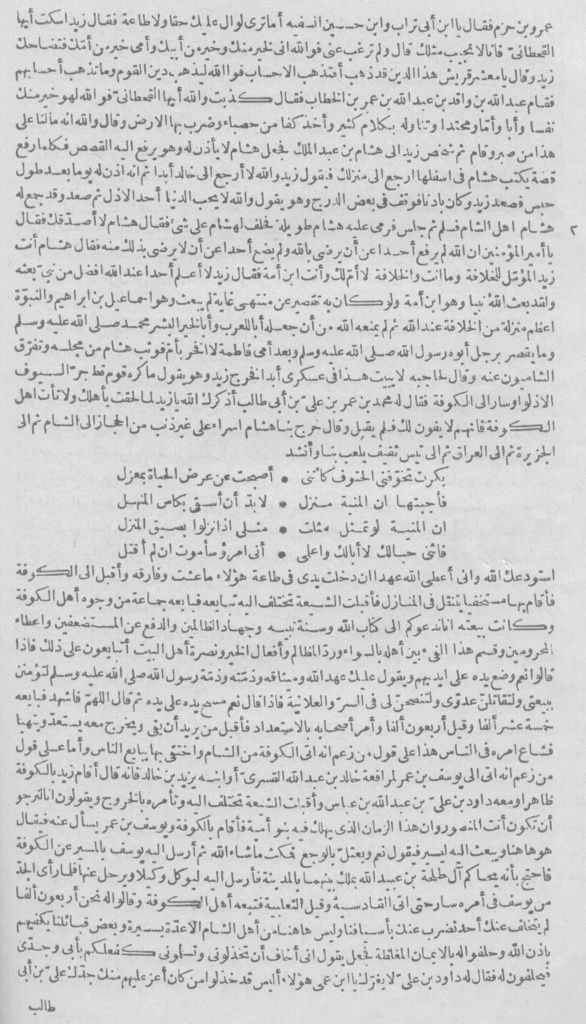 عمرو بن حزم فقال يا ابن أبي تراب وابن حسين السفيه أما ترى لوال عليك حقا ولا طاعة فقال زيد اسكت أيها
القحطاني فانا لا نجيب مثلك قال ولم ترغب عني فو الله اني لخير منك وخير من أبيك وأمي خير من أمك فتضاحك
زيد وقال يا معشر قريش هذا الدين قد ذهب أفتذهب الاحساب فو الله ليذهب دين القوم وما تذهب أحسابهم
فقام عبد الله بن واقد بن عبد الله بن عمر بن الخطاب فقال كذبت والله أيها القحطاني فو الله لهو خير منك
نفسا وأبا وأما ومحتدا وتناوله بكلام كثير وأخذ كفا من حصباء وضرب بها الارض وقال والله انه ما لنا على
هذا من صبر وقام ثم شخص زيد الى هشام بن عبد الملك فجعل هشام لا يأذن له وهو يرفع اليه القصص فكلما رفع
قصة يكتب هشام في اسفلها ارجع الى منزلك فيقول زيد والله لا أرجع الى خالد أبدا ثم انه اذن له يوما بعد طول
حبس فصعد زيد وكان بادنا فوقف في بعض الدرج وهو يقول والله لا يحب الدنيا أحد الا ذل ثم صعد وقد جمع له
هشام اهل الشام فسلم ثم جلس فرمى عليه هشام طويلة فحلف لهشام على شئ فقال هشام لا أصدقك فقال
يا أمير المؤمنين ان الله لم يرفع أحدا عن أن يرضى بالله ولم يضع أحدا عن أن لا يرضى بذلك منه فقال هشام أنت
زيد المؤمل للخلافة وما أنت والخلافة لا أم لك وأنت ابن أمة فقال زيد لا أعلم أحدا عند الله افضل من نبي بعثه
ولقد بعث الله نبيا وهو ابن أمة ولو كان به تقصير عن منتهى غاية لم يبعث وهو اسماعيل بن ابراهيم والنبوة
اعظم منزلة من الخلافة عند الله ثم لم يمنعه الله من أن جعله أبا للعرب وأبا لخير البشر محمد صلى الله عليه وسلم
وما يقصر برجل أبوه رسول الله صلى الله عليه وسلم وبعد أمي فاطمة لا أفخر بأم فوثب هشام من مجلسه وتفرق
الشاميون عنه وقال لحاجبه لا يبيت هذا في عسكري أبدا فخرج زيد وهو يقول ما كره قوم قط حر السيوف
الا ذلوا وسار الى الكوفة فقال له محمد بن عمر بن علي بن أبي طالب أذكرك الله يا زيد لما لحقت بأهلك ولا تأت اهل
الكوفة فانهم لا يفون لك فلم يقبل وقال خرج بنا هشام اسراء على غير ذنب من الحجاز الى الشام ثم الى
الجزيرة ثم الى العراق ثم الى تيس ثقيف يلعب بنا وأنشد
بكرت تخوفني الحتوف كأنني * أصبحت عن عرض الحياة بمعزل
فأجبتها ان المنية منزل * لا بد أن أسقى بكاس المنهل
ان المنية لو تمثل مثلت * مثلي اذا نزلوا بضيق المنزل
فاثني حبالك لا أبالك واعلمي * أني امرؤ سأموت ان لم أقتل
استودعك الله واني أعطي الله عهدا ان دخلت يدي في طاعة هؤلاء ما عشت وفارقه وأقبل الى الكوفة
فأقام بها مستخفيا يتنقل في المنازل فأقبلت الشيعة تختلف اليه تبايعه فبايعه جماعة من وجوه أهل الكوفة
وكانت بيعته انا ندعوكم الى كتاب الله وسنة نبيه وجهاد الظالمين والدفع عن المستضعفين واعطاء
المحرومين وقسم هذا الفيء بين أهله بالسواء ورد المظالم وأفعال الخير ونصرة أهل البيت أتبايعون على ذلك فاذا
قالوا نعم وضع يده على ايديهم ويقول عليك عهد الله وميثاقه وذمته وذمة رسول الله صلى الله عليه وسلم لتؤمنن
ببيعتي ولتقاتلن عدوي ولتنصحن لي في السر والعلانية فاذا قال نعم مسح يده على يده ثم قال اللهم فاشهد فبايعه
خمسة عشر ألفا وقيل أربعون ألفا وأمر أصحابه بالاستعداد فأقبل من يريد أن يفي ويخرج معه يستعد ويتهيا
فشاع امره في الناس هذا على قول من زعم انه اتى الكوفة من الشام واختفى بها يبايع الناس وأما على قول
من زعم انه اتى الى يوسف بن عمر لمرافعة خالد بن عبد الله القسري أو ابنه يزيد بن خالد فانه قال أقام زيد بالكوفة
ظاهرا ومعه داود بن علي بن عبد الله بن عباس وأقبلت الشيعة تختلف اليه وتأمره بالخروج ويقولون انا لنرجو
أن تكون أنت المنصور وان هذا الزمان الذي يهلك فيه بنو أمية فأقام بالكوفة ويوسف بن عمر يسأل عنه فيقال
هو هاهنا ويبعث اليه ليسير فيقول نعم ويعتل بالوجع فمكث ما شاء الله ثم أرسل اليه يوسف بالمسير عن الكوفة
فاحتج بأنه يحاكم آل طلحة بن عبيد الله بملك بينهما بالمدينة فأرسل اليه ليوكل وكيلا ويرحل عنها فلما رأى الجد
من يوسف في أمره سار حتى اتى القادسية وقيل الثعلبية فتبعه أهل الكوفة وقالوا له نحن أربعون ألفا
لم يتخلف عنك أحد نضرب عنك بأسيافنا وليس هاهنا من أهل الشام الا عدة يسيرة وبعض قبائلنا يكفيهم
باذن الله وحلفوا له بالايمان المغلظة فجعل يقول اني أخاف أن تخذلوني وتسلموني كفعلكم بأبي وجدي
فيحلفون له فقال له داود بن علي لا يغرك يا ابن عمي هؤلاء أليس قد خذلوا من كان أعز عليهم منك جدك علي بن أبي
طالب
٢